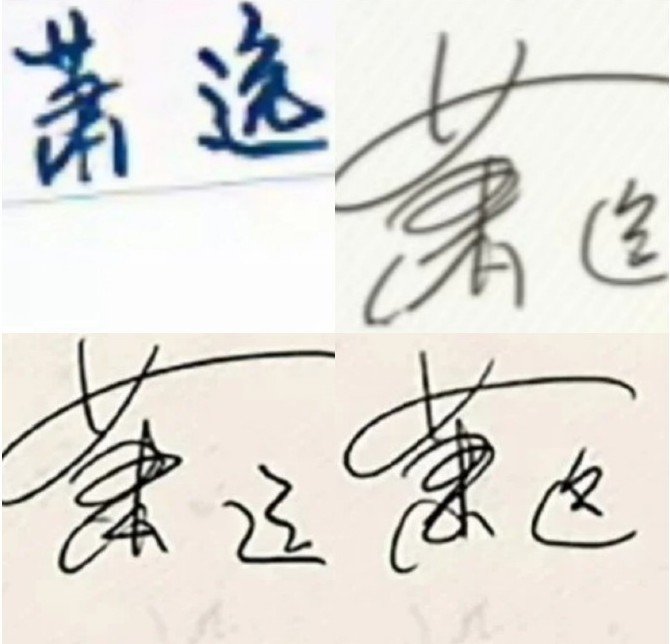 萧逸 萧逸
萧逸 萧逸